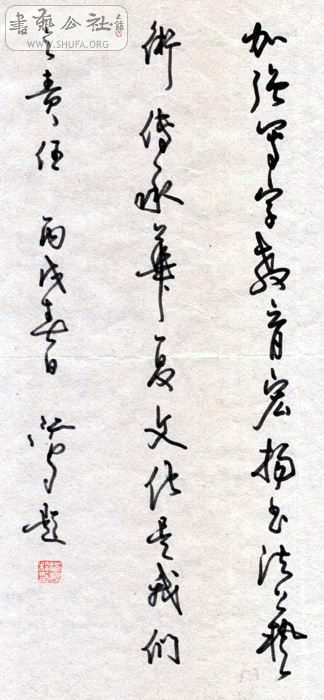 加强写字教育宏扬书法艺
术传承华夏文化是我们
之责任 丙戌春日 题
書藝公社
WWW.SHUFA.ORG